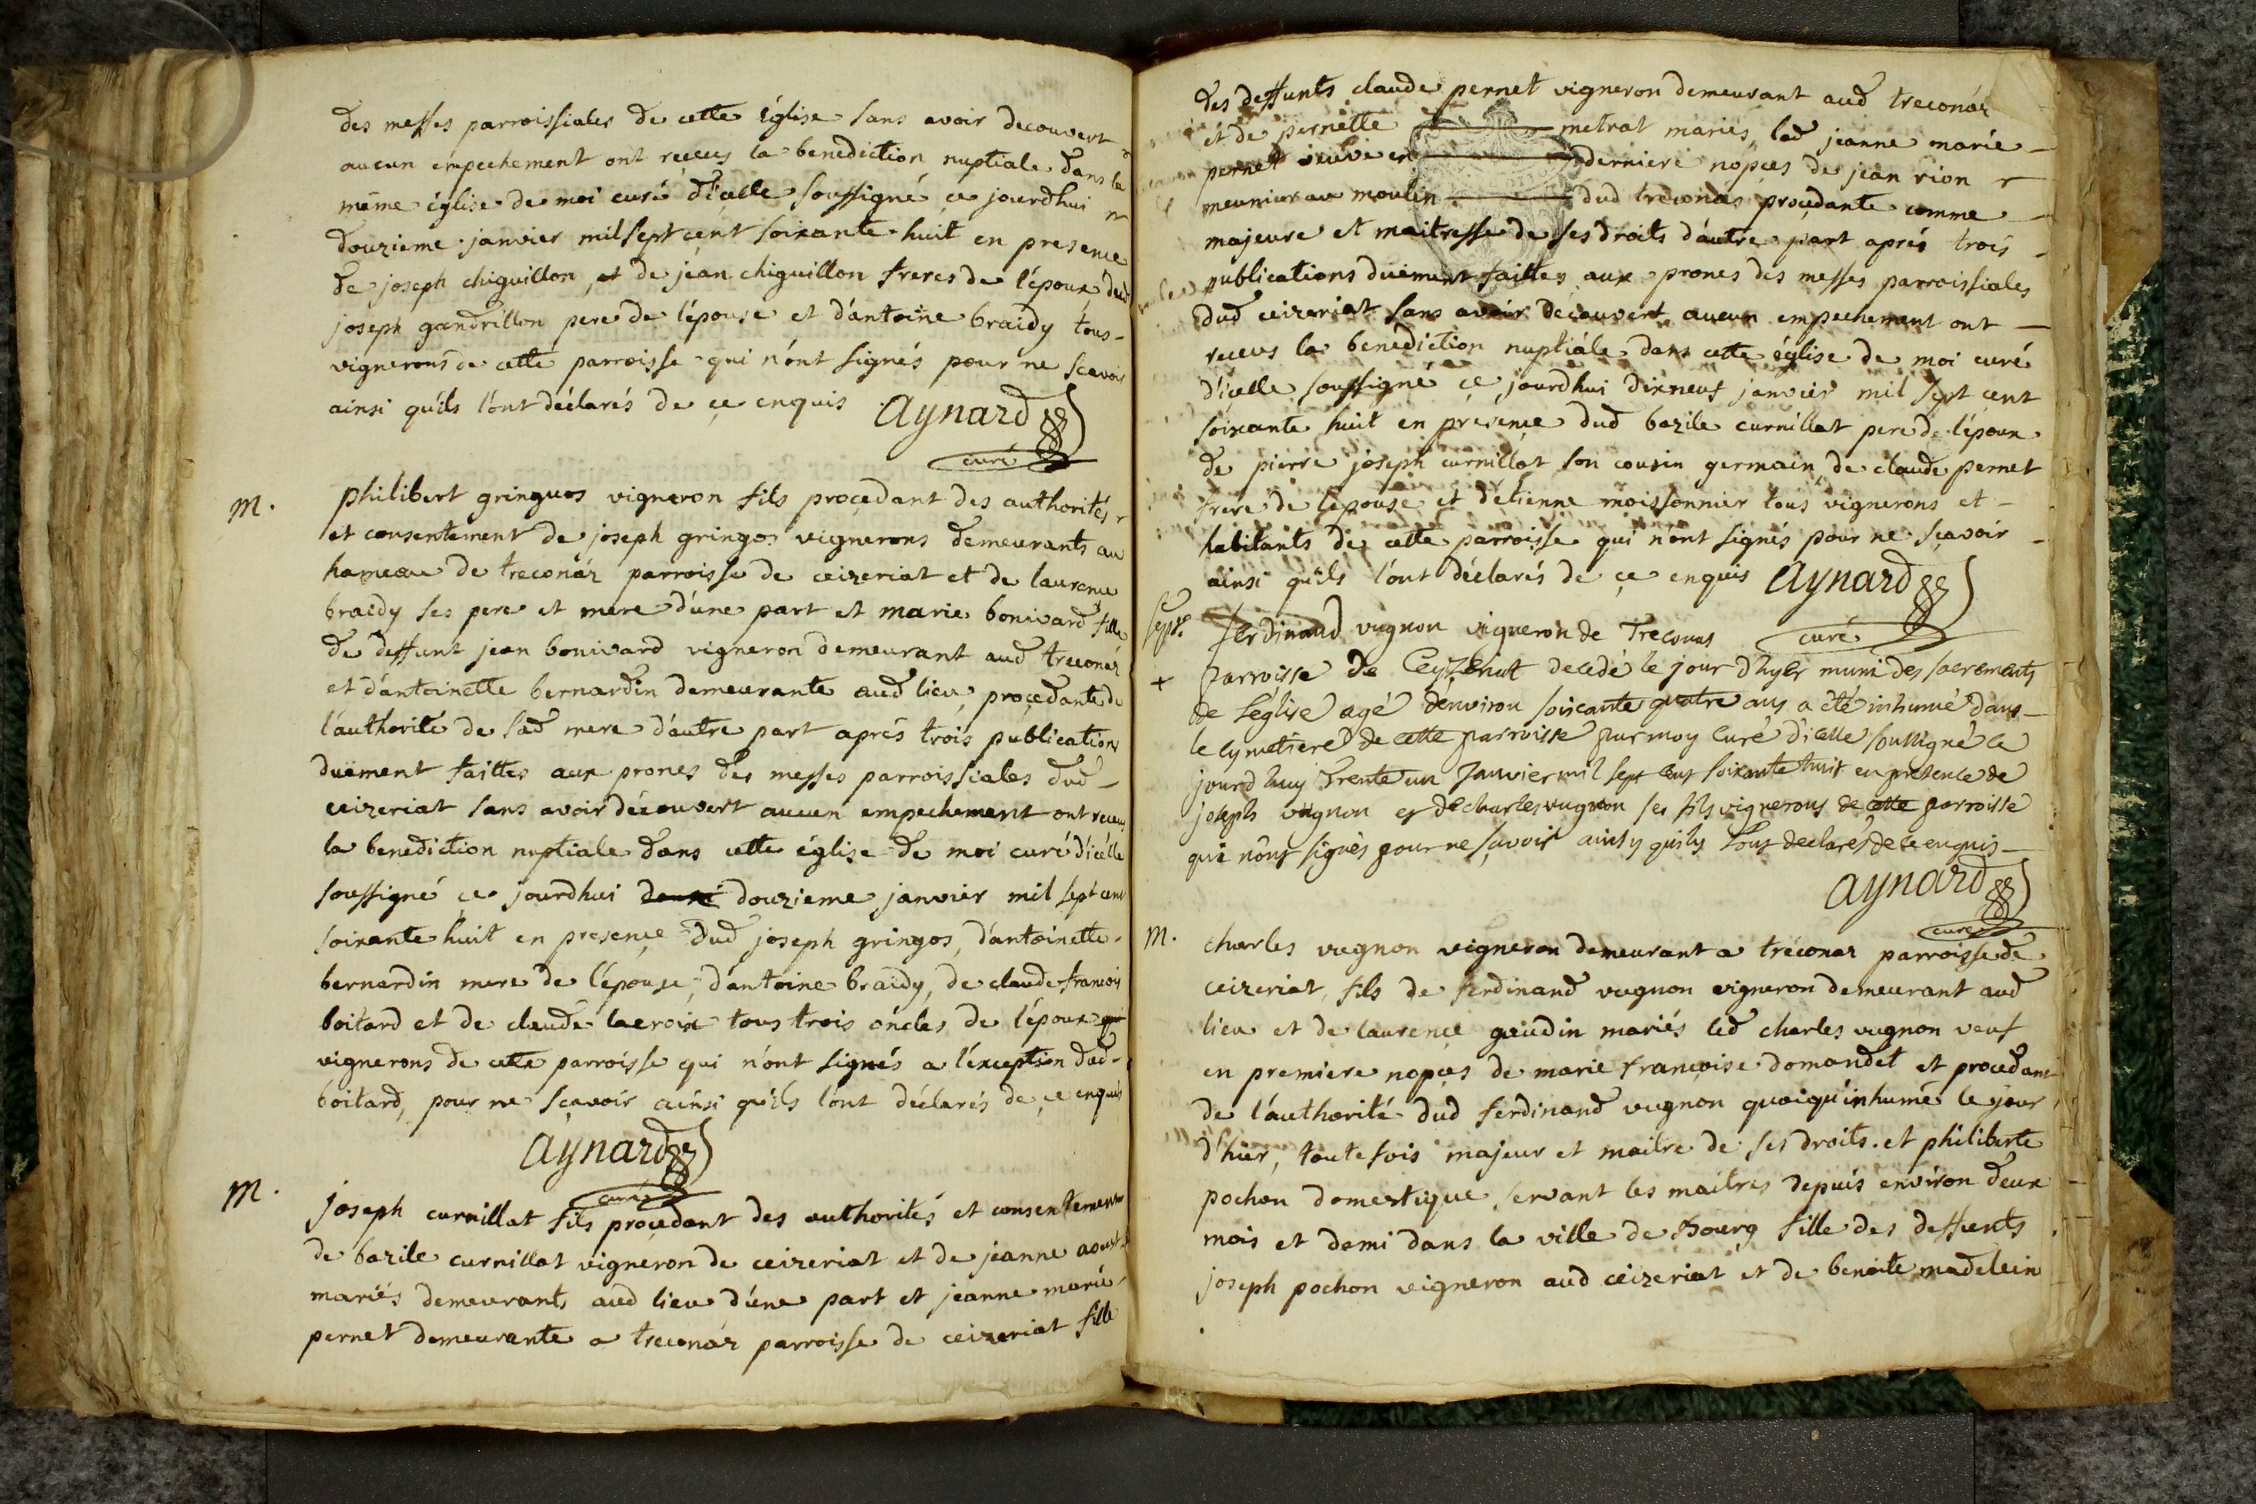 des messes parroissiales de cette église sans avoir decouvert
aucun empechement ont recus la benediction nuptiale dans la
même église de moi curé d'icelle soussigné ce jourdhui
douzieme janvier mil sept cent soixante huit en presence
de joseph chiguillon, et de jéan chiguillon freres de l'époux dud
joseph gandrillon pere de l'épouse et d'antoine braidy tous
vignerons de cette parroisse qui n'ont signés pour ne scavoir
ainsi qu'ils l'ont déclarés de çe enquis Aynard
curé
M. philibert gringuos vigneron fils proçedant des authorités
et consentement de joseph gringos vignerons demeurants au
hameau de treconáz parroisse de ceizeriat et de laurence
braidy ses pere et mere d'une part et marie bonivard fille
de deffunt jean bonivard vigneron demeurant aud treconáz
et d'antoinette bernardin demeurante aud lieu, proçedante de
l'authorité de sad mere d'autre part aprés trois publications
duëment faittes aux prones des messes parroissiales dud
ceizeriat sans avoir découvert aucun empechement ont recus
la benediction nuptiale dans cette église de moi curé d'icelle
soussigné ce jourdhui douzieme janvier mil sept cent
soixante huit en presençe dud joseph gringos, d'antoinette
bernardin mere de l'épouse, d'antoine braidy, de claude francois
boitard et de claude lacroix tous trois oncles de l'époux
vignerons de cette parroisse qui n'ont signés a l'éxception dud
boitard, pour ne sçavoir ainsi qu'ils l'ont déclarés de çe enquis
Aynard
curé
M. joseph curnillat fils proçedant des authorités et consentement
de bazile curnillat vigneron de ceizeriat et de jeanne
mariés demeurants aud lieu d'une part et jeanne marie
pernet demeurante a treconáz parroisse de ceizeriat fille
des deffunts claude pernet vigneron demeurant aud treconáz
et de pernette metrat mariés, lad jeanne marie
pernet veuve en derniere nopçes de jean rion
meunier au moulin dud treconas proçedante comme
majeure et maitresse de ses droits d'autre part aprés trois
publications duëment faittes aux prones des messes parroissiales
dud ceizeriat sans avoir découvert aucun empechement ont
recevs la benediction nuptiále dans cette église de moi curé
d'icelle soussigné çe jourdhui dixneuf janvier mil sept cent
soixante huit en presençe dud bazile curnillat pere de l'époux
de pierre joseph curnillat son cousin germain, de claude pernet
frere de l'epouse et d'etienne moissonnier tous vignerons et
habitants de cette parroisse qui n'ont signés pour ne sçavoir
ainsi qu'ils l'ont déclarés de çe enquis Aynard
curé
sépre ferdinand vugnon vigneron de Treconas
+ parroisse de Ceyzeriat decedé le jour d'hyer muni des sacrements
de l'église agé d'environ soixante quatre ans a été inhumé dans
le cymetiere de cette parroisse par moy curé d'icelle soussigné ce
jourd'huy trente un janvier mil sept cent soixante huit en presence de
joseph vugnon et de charles vugnon ses fils vignerons de cette parroisse
qui n'ont signés pour ne sçavoir ainsy qu'ils l'ont declarés de ce enquis
Aynard
curé
M. charles vugnon vigneron demeurant a tréconaz parroisse de
ceizeriat, fils de ferdinand vugnon vigneron demeurant aud
lieu et de laurençe gaudin mariés led charles vugnon veuf
en premiere nopçes de marie françoise domandet et procedant
de l'authorité dud ferdinand vugnon quoiqu'inhumé le jour
d'hier, toutefois majeur et maitre de ses droits. et philiberte
pochon domestique servant les maitres depuis environ deux
mois et demi dans la ville de Bourg fille des deffunts
joseph pochon vigneron aud ceizeriat et de benoite madelein